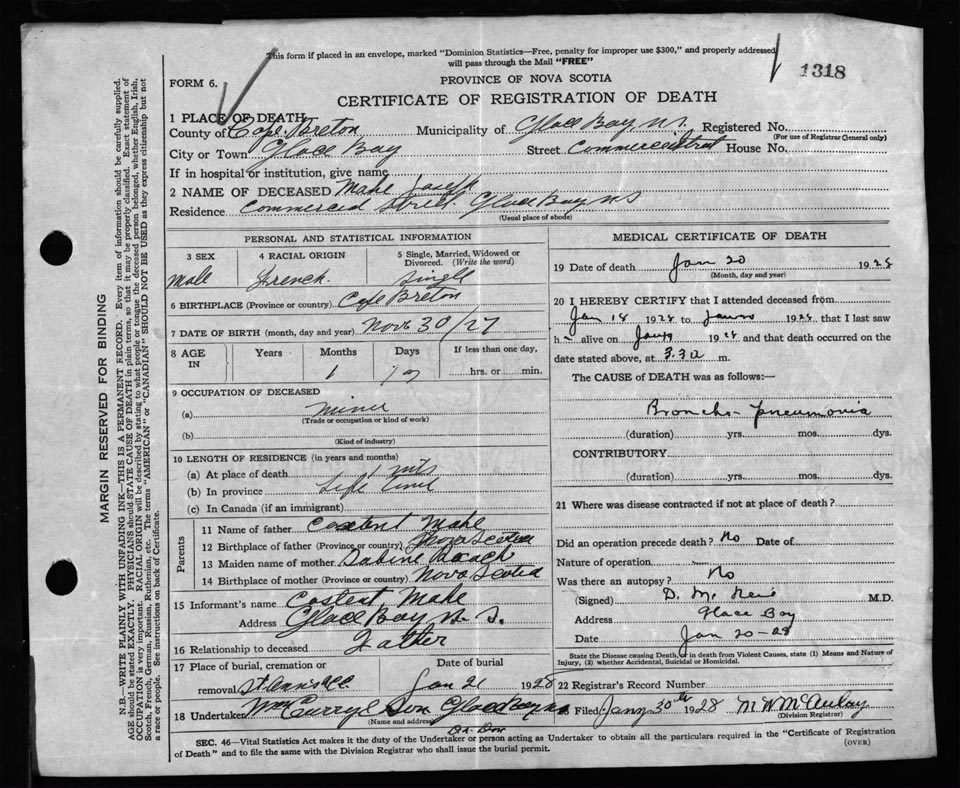 This form if placed in an envelope, marked "Dominion Statistics—Free, penalty for improper use $300," and properly addressed
will pass through the Mail "FREE"
1318
FORM 6.
PROVINCE OF NOVA SCOTIA
CERTIFICATE OF REGISTRATION OF DEATH
1 PLACE OF DEATH
County of Cape Breton Municipality of Glace Bay N.S. Registered No.
(For use of Registrar General only)
City or Town Glace Bay Street Commercial Street House No.
If in hospital or institution, give name
2 NAME OF DECEASED Mahe Joseph
Residence Commercial Street Glace Bay N S
(Usual place of abode)
PERSONAL AND STATISTICAL INFORMATION
3 SEX 4 RACIAL ORIGIN 5 Single, Married, Widowed or
Divorced. (Write the word)
Male French Single
6 BIRTHPLACE (Province or country) Cape Breton
7 DATE OF BIRTH (month, day and year) Nov 30/27
8 AGE IN Years Months Days If less than one day,
1 hrs. or min.
9 OCCUPATION OF DECEASED
(a) Miner
(Trade or occupation or kind of work)
(b)
(Kind of industry)
10 LENGTH OF RESIDENCE (in years and months)
(a) At place of death 1 mts
(b) In province Life time
(c) In Canada (if an immigrant)
Parents
11 Name of father Mahe
12 Birthplace of father (Province or country) Nova Scotia
13 Maiden name of mother Sabine
14 Birthplace of mother (Province or country) Nova Scotia
15 Informant's name Costent Mahe
Address Glace Bay N. S.
16 Relationship to deceased Father
17 Place of burial, cremation or Date of burial
removal Jan 21 1928
18 Undertaker Curry & Son Glace Bay N.S.
(Name and address)
MEDICAL CERTIFICATE OF DEATH
19 Date of death Jan 20 1928
(Month, day and year)
20 I HEREBY CERTIFY that I attended deceased from
Jan 18 1928 to Jan 20 1928 that I last saw
h alive on Jan 1928 and that death occurred on
date stated above, at 3.30 m.
The CAUSE of DEATH was as follows:—
Broncho-pneumonia
(duration) yrs. mos. dys.
CONTRIBUTORY
(duration) yrs. mos. dys.
21 Where was disease contracted if not at place of death?
Did an operation precede death? No Date of
Nature of operation
Was there an autopsy? No
(Signed) D. M. M.D.
Address Glace Bay
Date Jan 20-28
State the Disease causing Death, or in death from Violent Causes, state (1) Means and Nature of
Injury, (2) whether Accidental, Suicidal or Homicidal.
22 Registrar's Record Number
Filed Jany 30th 1928 M W McAulay
(Division Registrar)
SEC. 46—Vital Statistics Act makes it the duty of the Undertaker or person acting as Undertaker to obtain all the particulars required in the "Certificate of Registration
of Death" and to file the same with the Division Registrar who shall issue the burial permit.
(OVER)
MARGIN RESERVED FOR BINDING
N.B.—WRITE PLAINLY WITH UNFADING INK—THIS IS A PERMANENT RECORD. Every item of information should be carefully supplied.
AGE should be stated EXACTLY. PHYSICIANS should STATE CAUSE OF DEATH in plain terms, so that it may be properly classified. Exact statement of
OCCUPATION is very important. RACIAL ORIGIN will be described by stating to what people or tongue the deceased person belonged, whether English, Irish,
Scotch, French, German, Russian, Ruthenian, etc. The terms "AMERICAN" or "CANADIAN" SHOULD NOT BE USED as they express citizenship but not
a race or people. See instructions on back of Certificate.